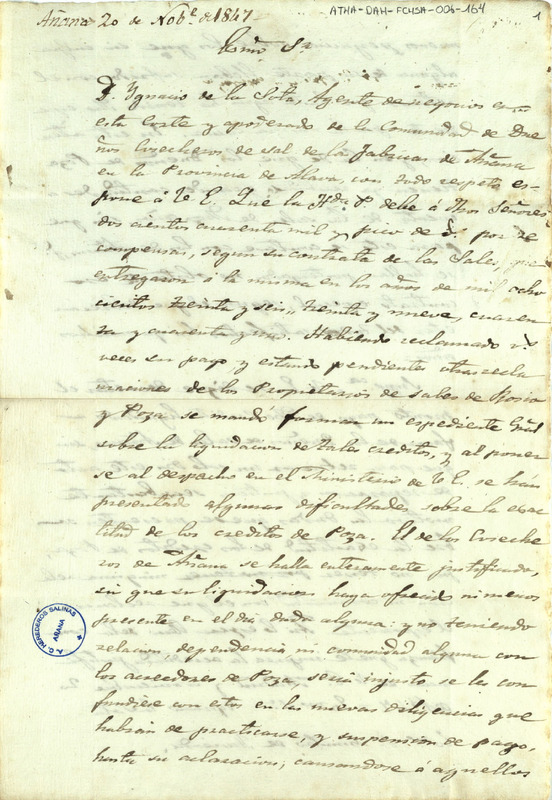 ATHA-DAH-FCHSA-006-164
1
Añana 20 de Nob.e de 1847
Exmo Sr
D. Ygnacio de la Sota, Agente de negocios en
esta Corte y apoderado de la Comunidad de Due
ños Cosecheros de sal de las Fabricas de Añana
en la Provincia de Alava, con todo respeto es-
pone á V. E. Que la Hda P. debe á dhos Señores
dos cientos cuarenta mil y pico de rs. por re
compensas, segun su contrata de las Sales, que
entregaron á la misma en los años de mil ocho
cientos treinta y seis, treinta y nueve, cuaren
ta y cuarenta y uno. Habiendo reclamado vs
veces su pago y estando pendientes otras recla
maciones de los Propietarios de sales de Rosio
y Poza se mandó formar un espediente Gral
sobre la liquidacion de tales creditos, y al poner
se al despacho en el Ministerio de V. E. se han
presentado algunas dificultades sobre la exac
titud de los creditos de Poza. El de los Coseche
ros de Añana se halla enteramente justificado,
sin que su liquidacion haya ofrecido ni menos
presente en el dia duda alguna: y no teniendo
relacion, dependencia ni comunidad alguna con
los acreedores de Poza, seria injusto se les con
fundiese con estos en las nuevas diligencias que
habrán de practicarse, y suspension de pago,
hasta su aclaracion; causandose á aquellos
HEREDEROS SALINAS
AÑANA